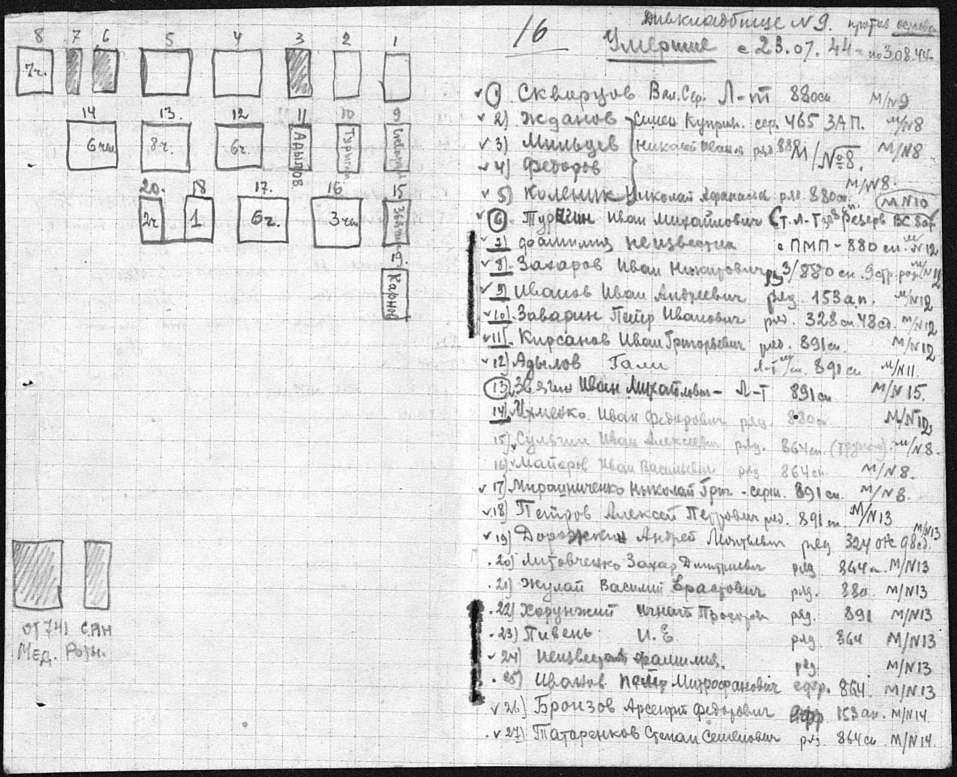 8 7 6 5 4 3 2 1
7ч.
14 13. 12 11 10 9
6 чел 8ч. 6ч. Адылов
20. 18 17. 16 15
2ч 1 6ч. 3 чел
16
Дивкладбище N 9. против
Умершие с 23.07.44 по 3.08.44
1) Скварцов Вал. Сер. Л-т 880сп М/N9
2) Жданов Семен Куприян. сер. 465 ЗАП. М/N8
3) Мильцев Николай Иванов ряд 880 М/N8
4) Федоров М/№8.
М/N8.
5) Коленик Николай Афанасьев. ряд 880сп. М N10
6) Иван Михайлович Ст. Л-т резерв
7) фамилия неизвестна с ПМП - 880 сп. N12
8) Захаров Иван Никитович 3/880 сп. 9 стр. рота
9) Иванов Иван Андреевич ряд. 153 ап. М/N12
10) Заварин Петр Иванович ряд. 328 сп 48 сд. М/N12
11) Кирсанов Иван Григорьевич ряд. 891 сп. М/N12
12) Адылов Гали Л-т 891 сп М/N11
13) Иван Михайлович - Л-т 891 сп М/N15.
14) Иван Федорович ряд. 880сп. М/N12
15) Сульгин Иван Алексеевич ряд. 864 сп. М/N8.
16) Майоров Иван Васильевич ряд 864 сп. М/N8.
17) Мирошниченко Николай Григ. - серж. 891 сп. М/N8.
18) Петров Алексей Петрович ряд. 891 сп М/N13
19) Андрей Леонтьевич ряд 324 98 сд. М/N13
20) Литовченко Захар Дмитриевич ряд. 864 сп. М/N13
21) Жулай Василий Ерастович ряд. 880 М/N13
22) Хорунжий Игнат Прохоров ряд. 891 М/N13
23) Пивень И. Е ряд 864 М/N13
24) Неизвестна фамилия. ряд. М/N13
25) Иванов Петр Митрофанович ефр. 864. М/N13
26) Бронзов Арсентий Федорович 153 ап. М/N14
27) Татаренков Степан Семенович ряд. 864 сп М/N14.
Карпов
от 741 САН
Мед. Роты.